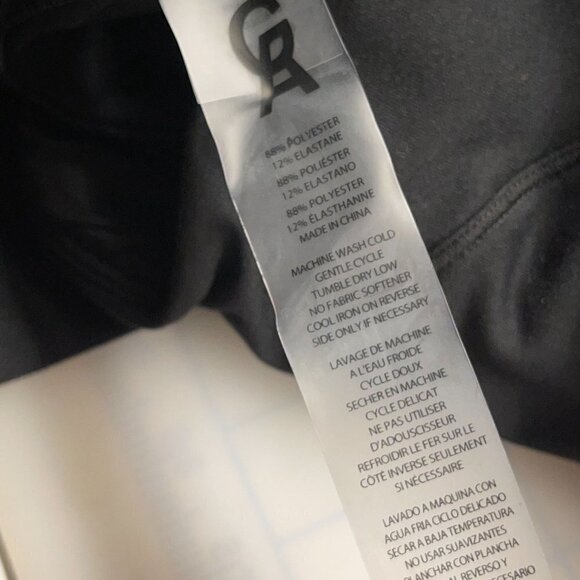 GA
88% POLYESTER
12% ELASTANE
88% POLIÉSTER
12% ELASTANO
88% POLYESTER
12% ÉLASTHANNE
MADE IN CHINA
MACHINE WASH COLD
GENTLE CYCLE
TUMBLE DRY LOW
NO FABRIC SOFTENER
COOL IRON ON REVERSE
SIDE ONLY IF NECESSARY
LAVAGE DE MACHINE
A L'EAU FROIDE
CYCLE DOUX
SECHER EN MACHINE
CYCLE DELICAT
NE PAS UTILISER
D'ADOUSCISSEUR
REFROIDIR LE FER SUR LE
CÔTÉ INVERSE SEULEMENT
SI NÉCESSAIRE
LAVADO A MAQUINA CON
AGUA FRIA CICLO DELICADO
SECAR A BAJA TEMPERATURA
NO USAR SUAVIZANTES
PLANCHAR CON PLANCHA
REVERSO Y